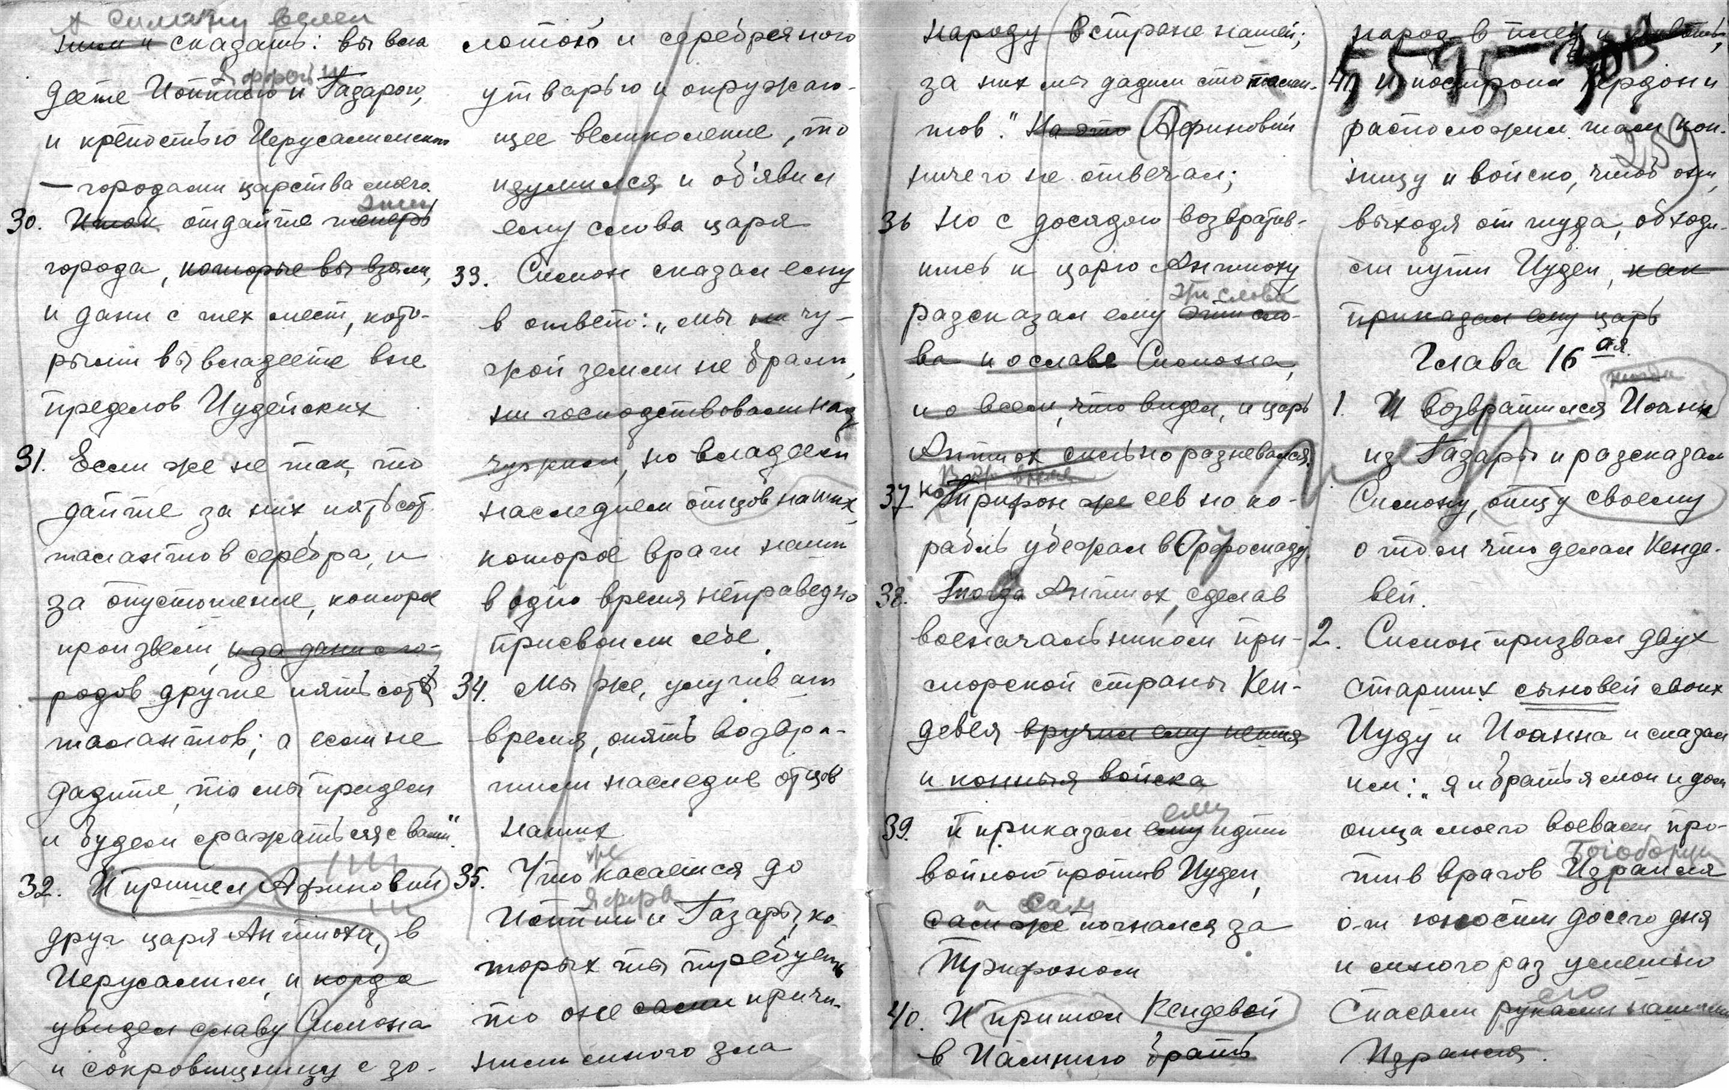 А Симону велел
ним и сказать: вы вла
Яффой и
деете Иоппиею и Газарою,
и крепостью Иерусалимскою
— городами царства моего.
30. Итак отдайте теперь
города, которые вы взяли,
и дани с тех мест, кото-
рыми вы владеете вне
пределов Иудейских
31. Если же не так, то
дайте за них пятьсот
талантов серебра, и
за опустошение, которое
произвели, и за дани с го-
родов другие пятьсот
талантов; а если не
дадите, то мы придем
и будем сражаться с вами".
32. И пришел Афиновий
друг царя Антиоха, в
Иерусалим, и когда
увидел славу Симона
и сокровищницу с зо-
лотою и серебряного
утварью и окружаю-
щее великолепие, то
изумился и об'явил
ему слова царя
33. Симон сказал ему
в ответ: „мы ни чу-
жой земли не брали,
ни господствовали над
чужим, но владеем
наследием отцов наших,
которое враги наши
в одно время неправедно
присвоили себе.
34. Мы же, улучив
время, опять возвра-
тили наследие отцов
наших
же
35. Что касается до
Яффа
Иоппии и Газары, ко-
торых ты требуешь
то они сами причи-
нили много зла
народу в стране нашей;
за них мы дадим сто талан-
тов." На это Афиновий
ничего не отвечал;
36 но с досадою возвратив-
шись к царю Антиоху
эти слова
рассказал ему эти сло-
ва и о славе Симона,
и о всем, что видел, и царь
Антиох сильно разгневался.
В то время
37 но Трифон же сев на ко-
рабль убежал в Орфосиаду,
38. Тогда Антиох, сделав
военачальником при-
морской страны Кен-
девея вручил ему пешия
и конныя войска
ему
39. и приказал ему идти
войною против Иудеи,
а сам
сам же погнался за
Трифоном
40. И пришол Кендевей
в Иамнию брать
народ в плен и
5595
41. И построил Кедрон и
расположил там кон-
259
ницу и войско, чтоб они,
выходя оттуда, обходи-
ли пути Иудеи, как
приказал ему царь
Глава 16ая.
1. И возвратился Иоанн
из Газары и рассказал
Симону, отцу своему
о том что делал Кенде-
вей.
2. Симон призвал двух
старших сыновей своих
Иуду и Иоанна и сказал
им: „я и братья мои и дом
отца моего воевали про-
тив врагов Израиля
от юности до сего дня
и много раз успешно
его
Спасали руками нашими
Израиля.